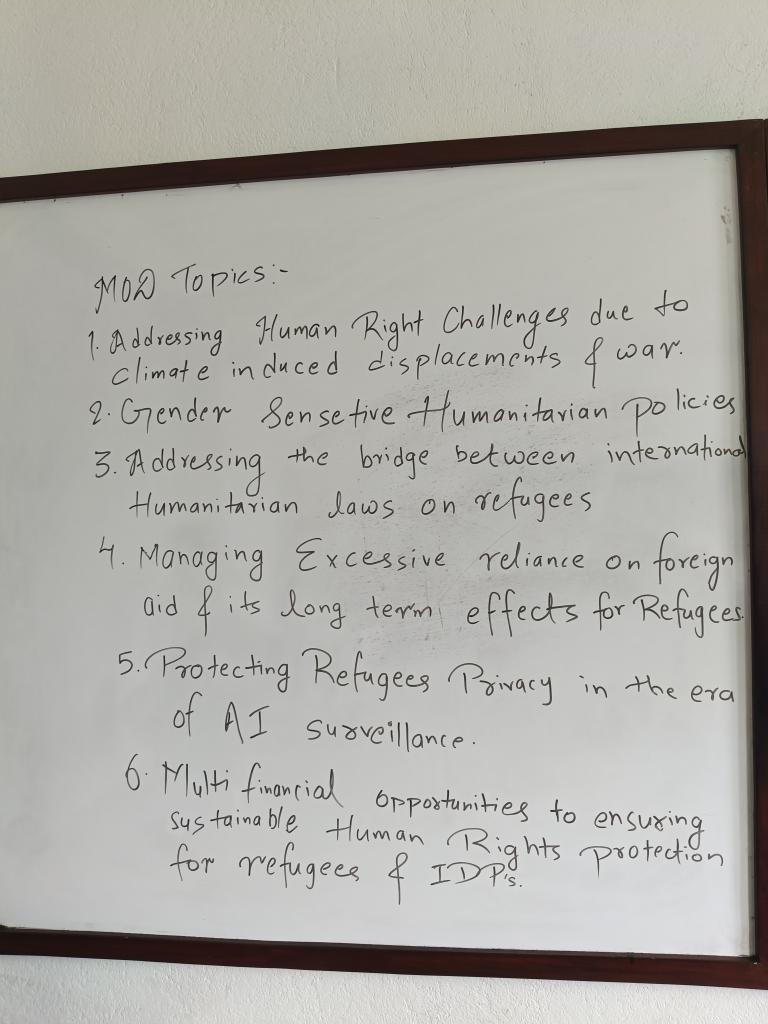 MOD Topics:-
1. Addressing Human Right Challenges due to
climate induced displacements & war.
2. Gender Sensetive Humanitarian policies
3. Addressing the bridge between international
Humanitarian laws on refugees
4. Managing Excessive reliance on foreign
aid & its long term effects for Refugees.
5. Protecting Refugees Privacy in the era
of AI surveillance.
6. Multi financial opportunities to ensuring
sustainable Human Rights protection
for refugees & IDP's.